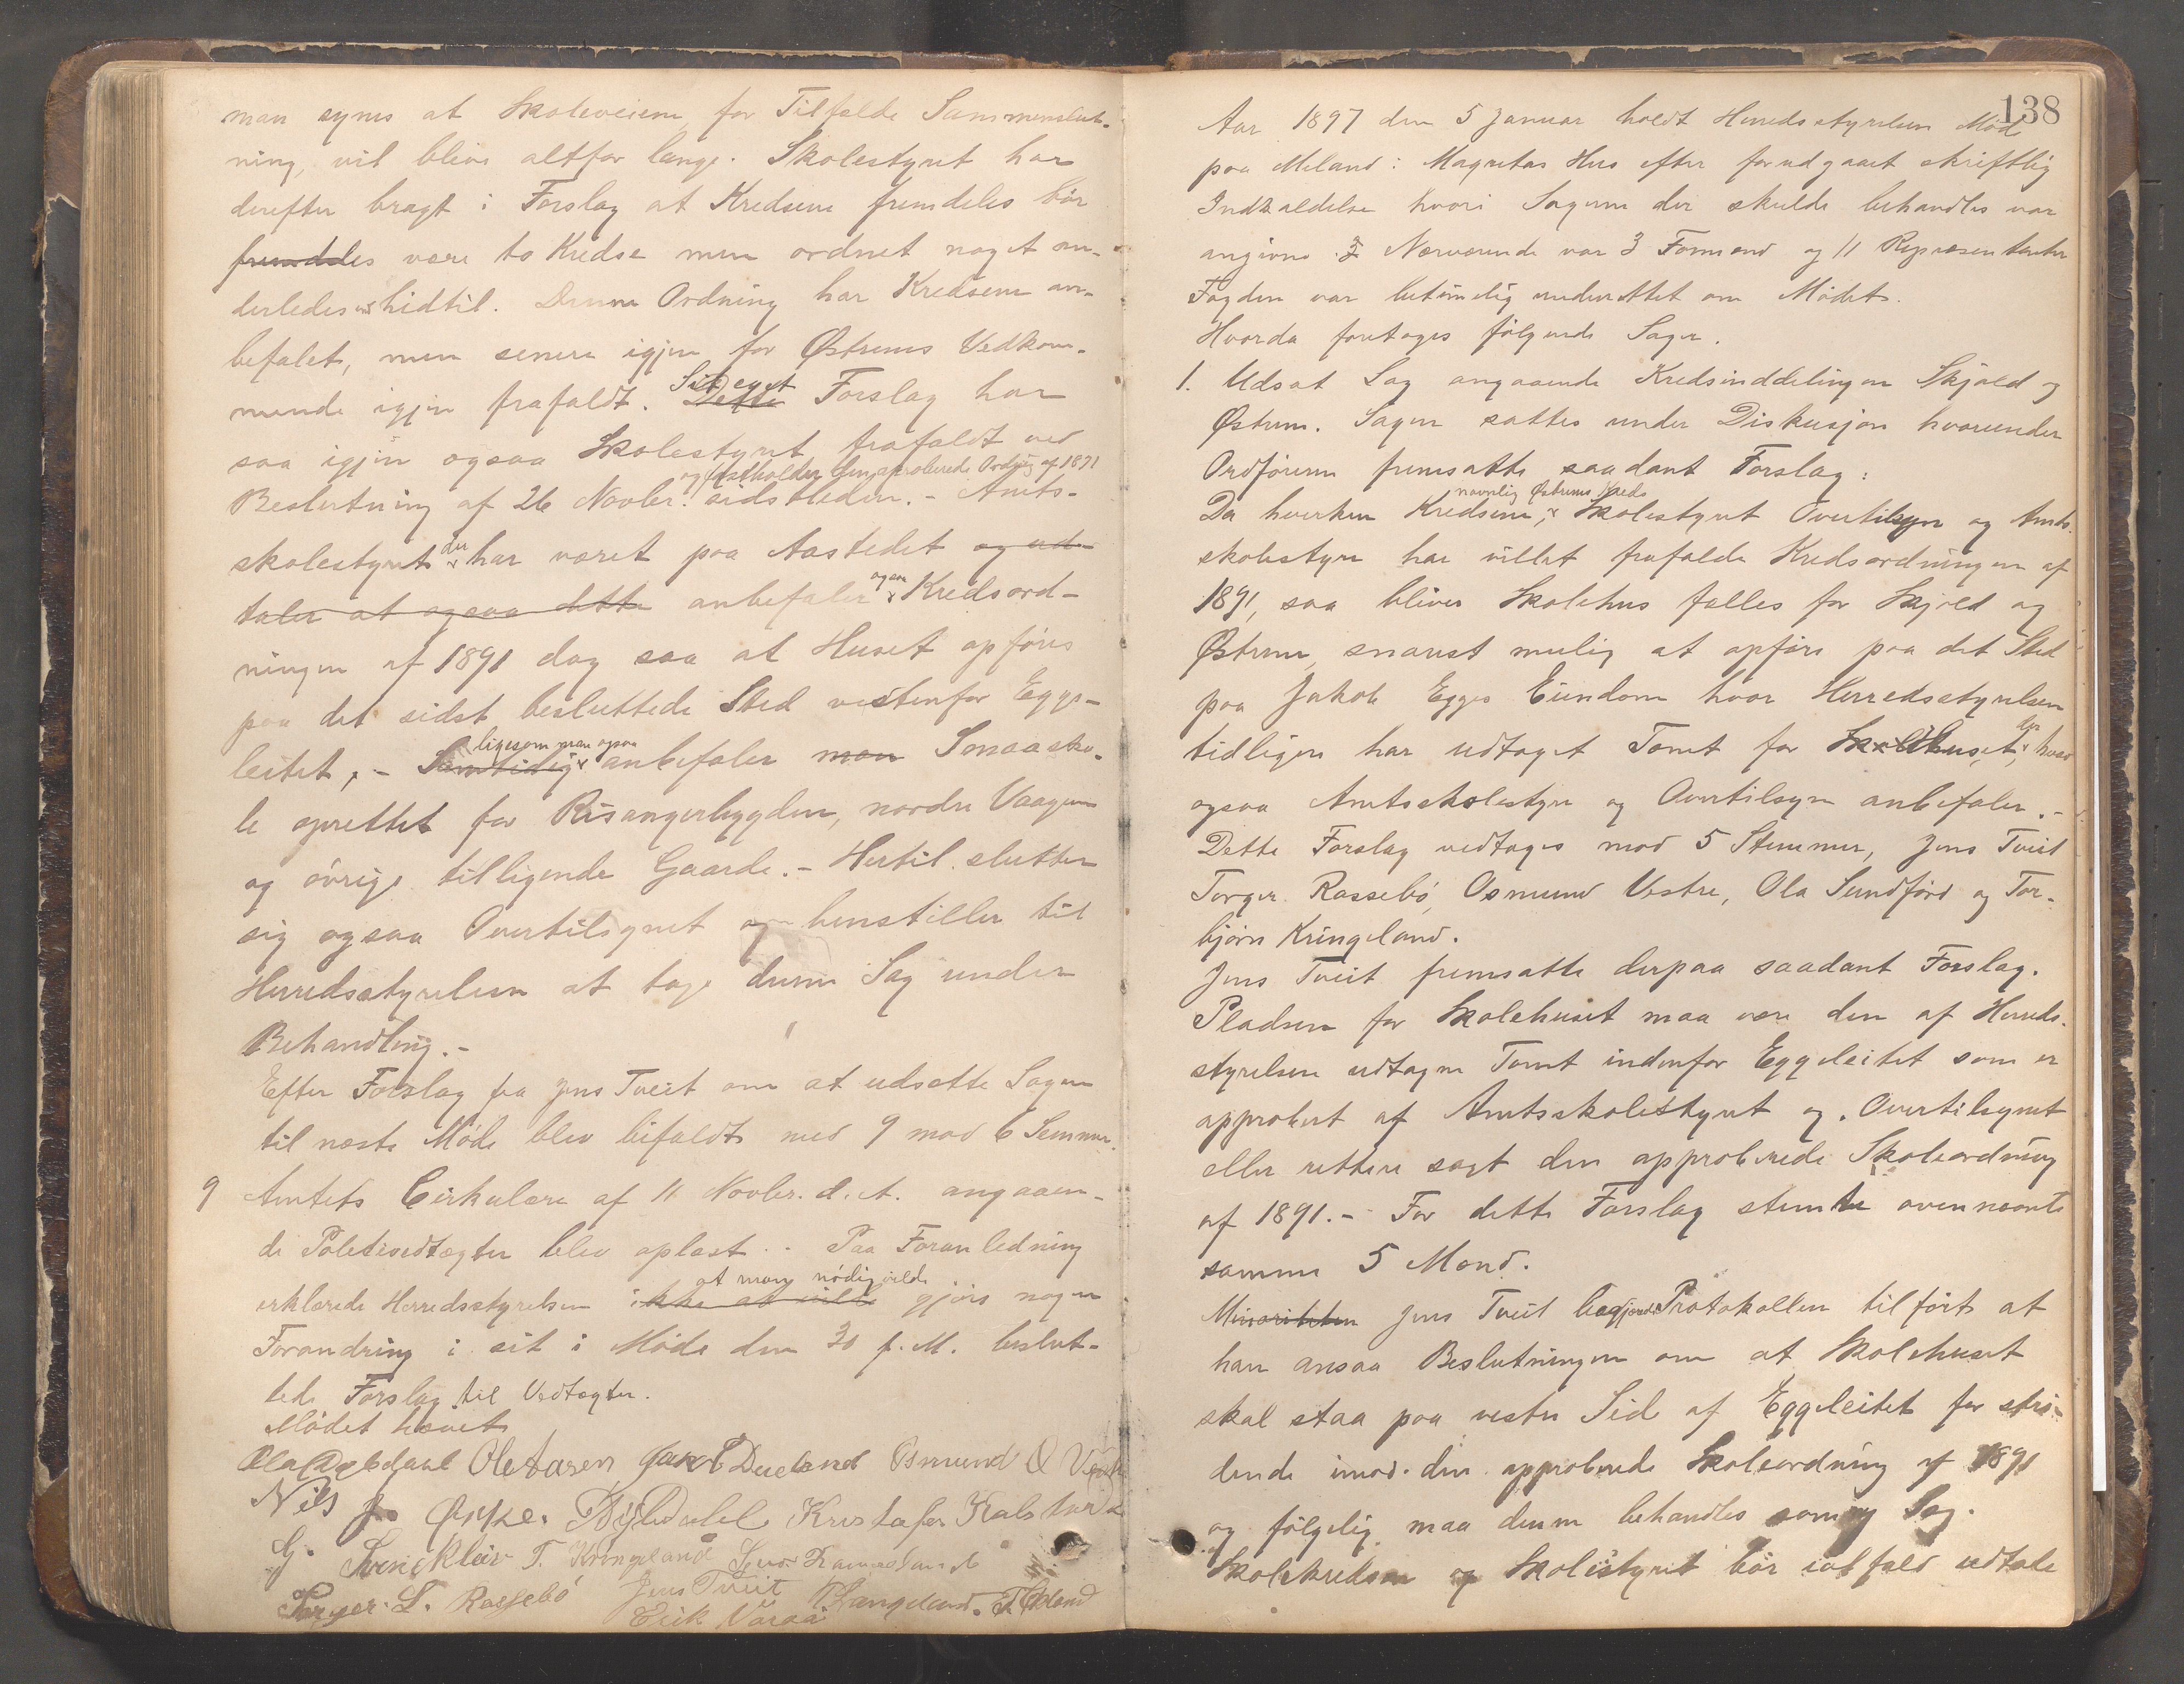 man synes at Skoleveiene for Tilfælde Sammenslut-
ning, vil blive altfor lange. Skolestyret har
derefter bragt i Forslag at Kredsene fremdeles bør
fremdeles være to Kredse men ordnet noget an-
derledes end hidtil. Denne Ordning har Kredsene an-
befalet, men senere igjen for Østrems Vedkom-
mende igjen frafaldt. Sit eget Dette Forslag har
saa igjen ogsaa Skolestyret frafaldt ved
og fastholder den aproberede Ordning af 1891
Beslutning af 26 Novbr. sidstleden. - Amts-
skolestyret der har været paa Aastedet og ud-
taler at ogsaa dette anbefaler ogsaa Kredsord-
ningen af 1891 dog saa at Huset opføres
paa det sidst besluttede Sted vestenfor Egge-
leitet, - Samtidig ligesom man ogsaa anbefaler man Smaasko-
le oprettet for Risangerbygden, nordre Vaagen
og øvrige tilligende Gaarde. - Hertil slutter
sig ogsaa Overtilsynet og henstiller til
Herredsstyrelsen at tage denne Sag under
Behandling. -
Efter Forslag fra Jens Tveit om at udsætte Sagen
til næste Møde blev bifaldt med 9 mod 6 Stemmer.
9 Amtets Cirkulære af 11 Novbr. d. A. angaaen-
de Politivedtægter blev oplæst. - Paa Foranledning
erklærede Herredsstyrelsen ikke at vilde at man nødig vilde gjøre nogen
Forandring i sit i Møde den 30 f. M. beslut-
tede Forslag til Vedtægter.
Mødet hævet
Ole Aasen Jakob Dueland Osmund O Vestre
Nils J. Økke. Kristofer Kalstvedt
G. Svendkleiv T. Kringeland
Torger L. Rassebø Jens Tveit T. Økland
Erik Varaa
138
Aar 1897 den 5 Januar holdt Herredsstyrelsen Møde
paa Meland i Magretas Hus efter forudgaaet skriftlig
Indkaldelse hvori Sagerne der skulde behandles var
angivne. Nærværende var 3 Formænd og 11 Repræsentanter
Fogden var betimelig underrettet om Mødet.
Hvorda foretoges følgende Sager.
1. Udsat Sag angaaende Kredsinddelingen Skjold og
Østrem. Sagen sattes under Diskusjon hvorunder
Ordføreren fremsatte saadant Forslag:
Da hverken Kredsene, navnlig Østrems Kreds Skolestyret Overtilsyn og Amts-
skolestyre har villet frafalde Kredsordningen af
1891, saa bliver Skolehus fælles for Skjold og
Østrem snarest mulig at opføre paa det Sted
paa Jakob Egges Eiendom hvor Herredsstyrelsen
tidligere har udtaget Tomt for Skolehuset, hvad
ogsaa Amtsskolestyre og Overtilsyn anbefaler. -
Dette Forslag vedtoges mod 5 Stemmer, Jens Tveit
Torger Rassebø, Osmund Vestre, Ola Sundfør og Tor-
bjørn Kringeland.
Jens Tveit fremsatte derpaa saadant Forslag.
Pladsen for Skolehuset maa være den af Herreds-
styrelsen udtagne Tomt indenfor Eggeleitet som er
approbert af Amtsskolestyret og Overtilsynet
eller rettere sagt den approberede Skoleordning
af 1891. - For dette Forslag stemte ovennævnte
samme 5 Mænd.
Minoriteten Jens Tveit begjærede Protokollen tilført at
han ansaa Beslutningen om at Skolehuset
skal staa paa vestre Side af Eggeleitet for stri-
dende imod den approberede Skoleordning af 1891
og følgelig maa denne behandles som ny Sag.
Skolekredsen og Skolestyret bør ialfald udtale